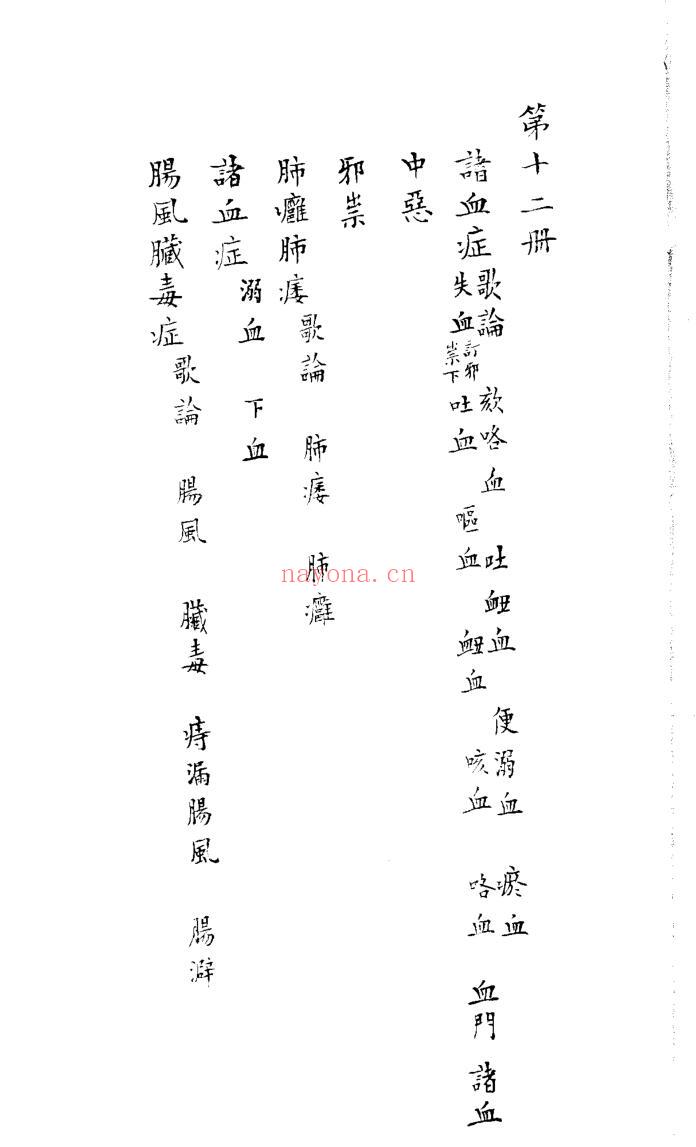 第十二册
諸血症歌論 欬咯血 吐衄血 便溺血 瘀血
失血訂邪祟下 吐血 嘔血 衄血 咳血 咯血 血門 諸血
中惡
邪祟
肺癰肺痿 歌論 肺痿 肺癰
諸血症 溺血 下血
腸風臟毒症 歌論 腸風 臟毒 痔漏腸風 腸澼
nayona.cn